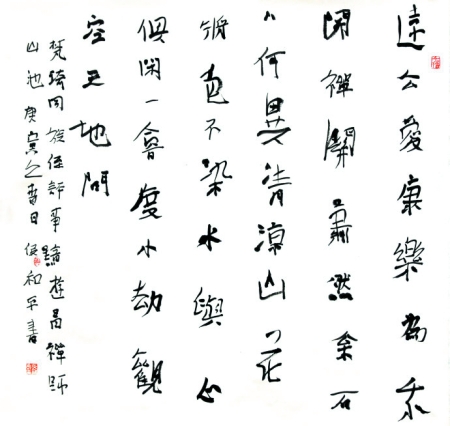 遠公愛康樂為我
開禪關蕭然松石
下何異清涼山花
將色不染水與心
俱閑一會度小劫觀
空天地間
同族侄評事黯遊昌禪師
山池庚寅之春日侯和平書